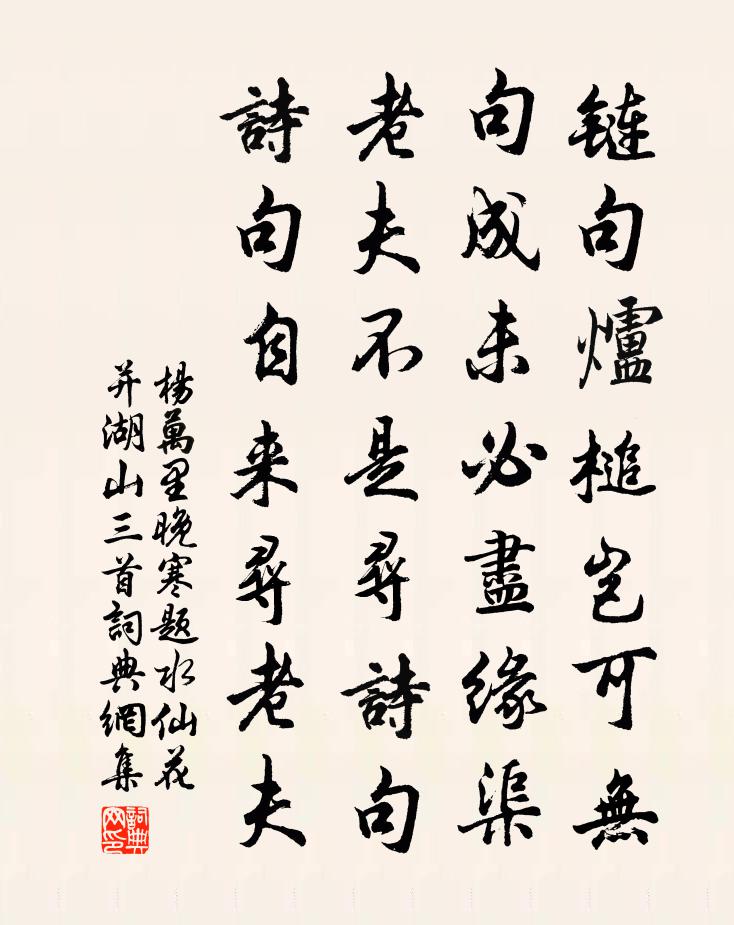 鏈句爐槌豈可無
句成未必盡緣渠
老夫不是尋詩句
詩句自来尋老夫
楊萬里晚寒题水仙花
并湖山三首詞典網集
詞典网印